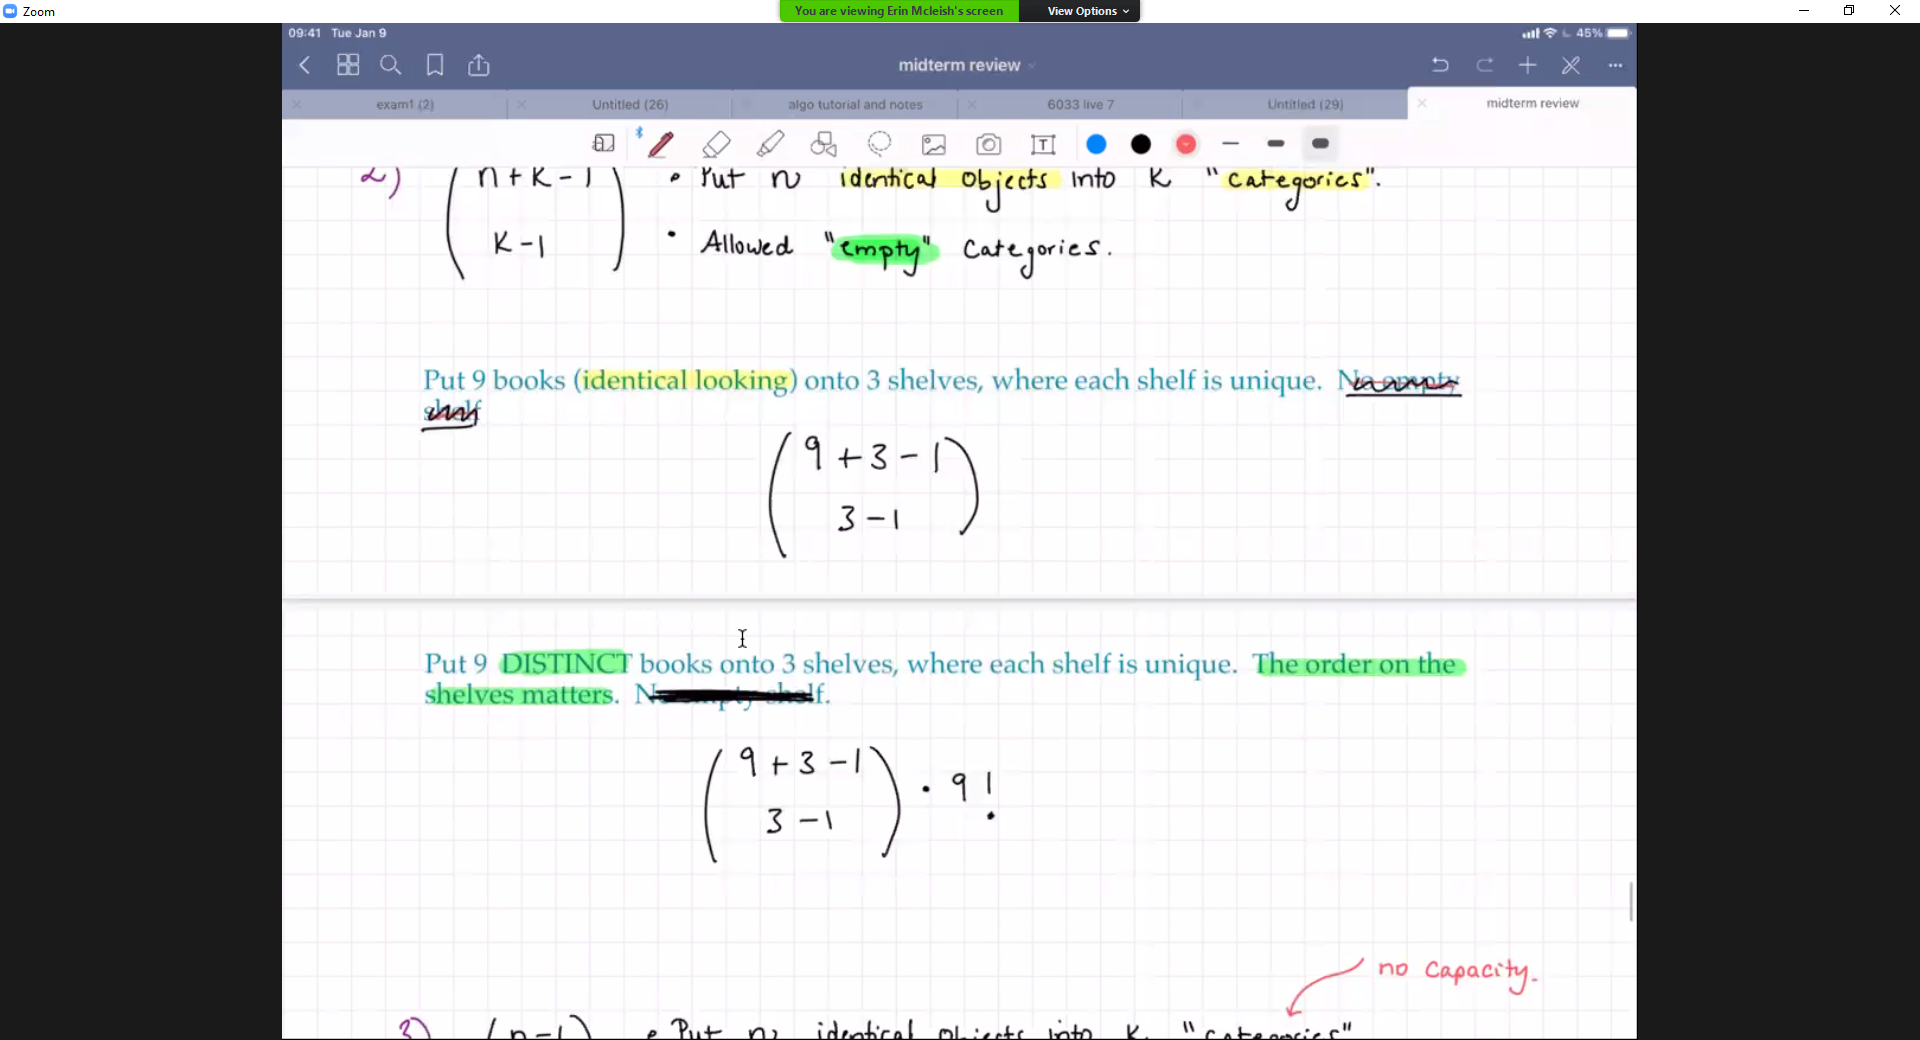 Zoom
You are viewing Erin Mcleish's screen
View Options
09:41 Tue Jan 9
45%
midterm review
exam1 (2)
Untitled (26)
algo tutorial and notes
6033 live 7
Untitled (29)
midterm review
T
2) (n + k - 1
k - 1) • Put n identical objects into k "categories".
• Allowed "empty" categories.
Put 9 books (identical looking) onto 3 shelves, where each shelf is unique. No empty
shelf
(9 + 3 - 1
3 - 1)
Put 9 DISTINCT books onto 3 shelves, where each shelf is unique. The order on the
shelves matters. No empty shelf.
(9 + 3 - 1
3 - 1) • 9!
no capacity.
3) (n - 1) • Put n identical objects into k "categories"